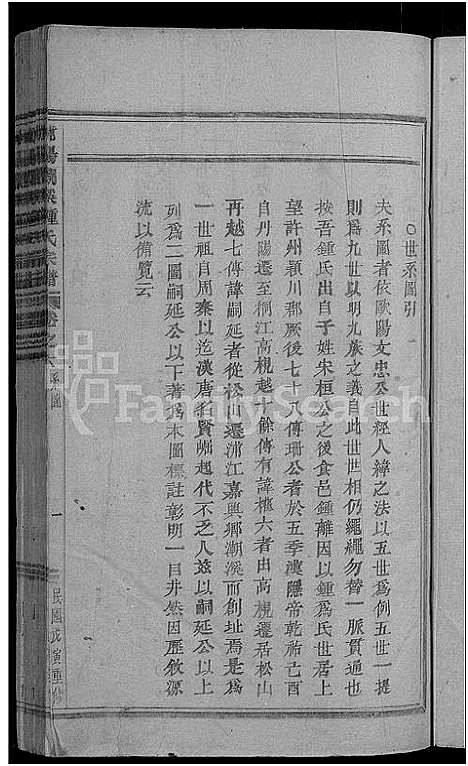 ○世系圖引
夫系圖者依歐陽文忠公世經人緯之法以五世爲例五世一提
則爲九世以明九族之義自此世世相仍繩繩勿替一脈貫通也
按吾鍾氏出自子姓宋桓公之後食邑鍾離因以鍾爲氏世居上
望許州潁川郡厥後七十八傳珊公者於五季漢隱帝乾祐己酉
自丹陽遷至桐江高梘越十餘傳有諱櫃六者由高梘遷居松山
再越七傳諱嗣延者從松山遷浦江嘉興鄉潮溪而創址焉是爲
一世祖自周秦以迄漢唐名賢崛起代不乏人茲以嗣延公以上
列爲二圖嗣延公以下著爲本圖標註彰明一目井然因歷敘源
流以備覽云
陽潮溪鍾氏宗譜
卷之六系圖
一
民國戊寅重修
FamilySearch